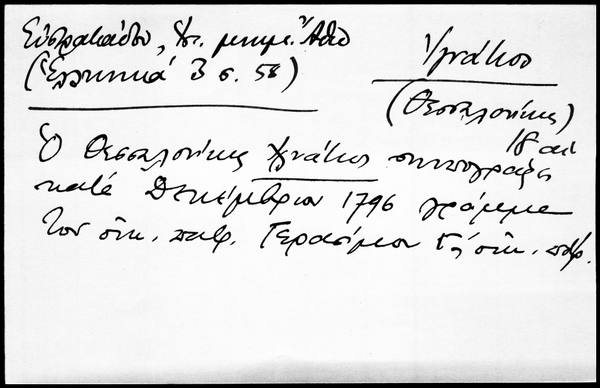 Εὐστρατιάδου, Ἱστ. μνημ. Ἄθω
(Ἑλληνικά 3 σ. 58)
Ἰγνάτιος
(Θεσσαλονίκης)
18 αἰ
Ὁ Θεσσαλονίκης Ἰγνάτιος συνυπογράφει
κατά Δεκέμβριον 1796 γράμμα
τοῦ οἰκ. πατρ. Γερασίμου Γ΄ οἰκ. πατρ.